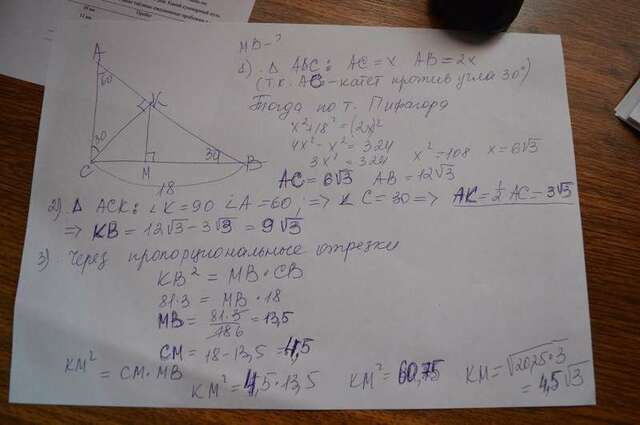 MB-?
A
60
K
30
30
C
M
B
18
1). Δ ABC: AC = x AB = 2x
(т.к. AC - катет против угла 30°)
Тогда по т. Пифагора
x²+18² = (2x)²
4x² - x² = 324
3x² = 324 x² = 108 x = 6√3
AC = 6√3 AB = 12√3
2). Δ ACK: ∠K = 90 ∠A = 60, => ∠C = 30 => AK = ½ AC = 3√3
=> KB = 12√3 - 3√3 = 9√3
3) Через пропорциональные отрезки
KB² = MB · CB
81·3 = MB · 18
MB = 81·3/18 6 = 13,5
CM = 18 - 13,5 = 4,5
KM² = CM · MB
KM² = 4,5 · 13,5 KM² = 60,75 KM = √20,25·3
= 4,5√3